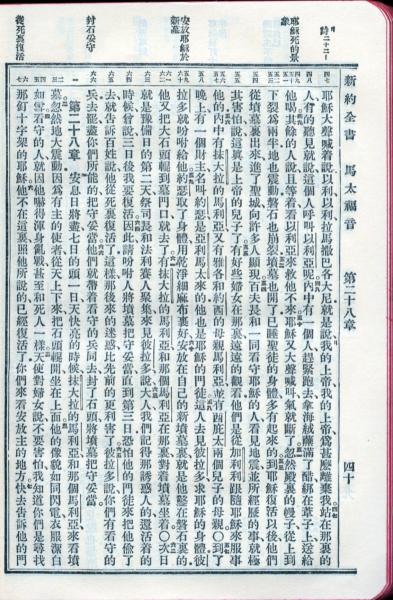 新約全書 馬太福音 第二十八章 四十
詩二十二
耶穌死的景象
安放耶穌於新墓
封石妥守
從死裏復活
耶穌大聲喊着說以利以利拉馬撒巴各大尼就是說我的上帝我的上帝爲甚麼離棄我站在那裏的
人有的聽見就說這個人呼叫以利亞呢內中有一個人趕緊跑去拿海絨蘸滿了醋綁在葦子上送給
他喝其餘的人說且等着看以利亞來救他不來耶穌又大聲喊叫氣就斷了忽然殿裏的幔子從上到
下裂爲兩半地也震動磐石也崩裂墳墓也開了已睡聖徒的身體多有起來的到耶穌復活以後他們
從墳墓裏出來進了聖城向許多人顯現百夫長和一同看守耶穌的人看見地震並所經歷的事就極
其害怕說這眞是上帝的兒子了有好些婦女在那裏遠遠的觀看他們是從加利利跟隨耶穌來服事
他的內中有抹大拉的馬利亞又有雅各和約西的母親馬利亞並有西庇太兩個兒子的母親○到了
晚上有一個財主名叫約瑟是亞利馬太來的他也是耶穌的門徒這人去見彼拉多求耶穌的身體彼
拉多就吩咐給他約瑟取了身體用乾淨細麻布裹好安放在自己的新墳墓裏就是他鑿在磐石裏的
他又把大石頭輥到墓門口就去了有抹大拉的馬利亞和那個馬利亞在那裏對着墳墓坐着○次日
就是豫備日的第二天祭司長和法利賽人聚集來見彼拉多說大人我們記得那誘惑人的還活着的
時候曾說三日後我要復活因此請吩咐人將墳墓把守妥當直到第三日恐怕他的門徒來把他偷了
去就告訴百姓說他從死裏復活了這樣那後來的迷惑比先前的更利害了彼拉多說你們有看守的
兵去罷盡你們所能的把守妥當他們就帶着看守的兵同去封了石頭將墳墓把守妥當
第二十八章 安息日將盡七日的頭一日天快亮的時候抹大拉的馬利亞和那個馬利亞來看墳
墓忽然地大震動因爲有主的使者從天上下來把石頭輥開坐在上面他的像貌如同閃電衣服潔白
如雪看守的人就因他嚇得渾身亂戰甚至和死人一樣天使對婦女說不要害怕我知道你們是尋找
那釘十字架的耶穌他不在這裏照他所說的已經復活了你們來看安放主的地方快去告訴他的門